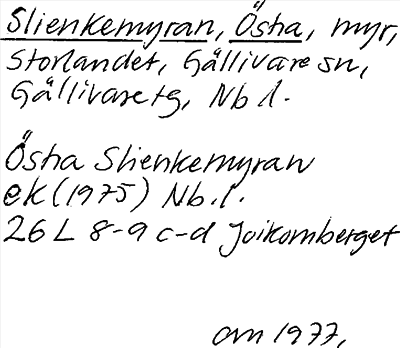 Slienkemyran, Östra, myr,
Storlandet, Gällivare sn,
Gällivare tg, Nb l.
Östra Slienkemyran
ek (1975) Nb. l.
26 L 8-9 c-d Joikomberget
am 1977,